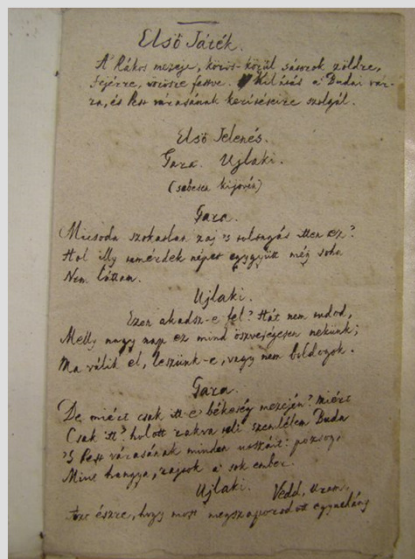 Első Játék.
A' Rákos mezeje, körös-körül sátorok zöldre,
fejérre, vörösre festve. Kilátás a' Budai vár-
ra, és Pest városának kerítéseire szolgál.
Első Jelenés.
Gara. Ujlaki.
(sebesen kijövén)
Gara.
Micsoda szokatlan zaj 's tolongás itten ez?
Hol illy temérdek népet eggyütt még soha
Nem láttam.
Ujlaki.
Ezen akadsz-e fel? Hát nem tudod,
Melly nagy nap ez mind összvességesen nekünk;
Ma válik el, leszünk-e, vagy nem boldogok.
Gara.
De miért csak itt e' békesség mezején? miért
Csak itt? holott rakva vólt szemlátom Buda
'S Pest városának minden
Mint hangya, zajog a' sok ember.
Ujlaki. Vedd, Uram,
észre, hogy most megszaporodott